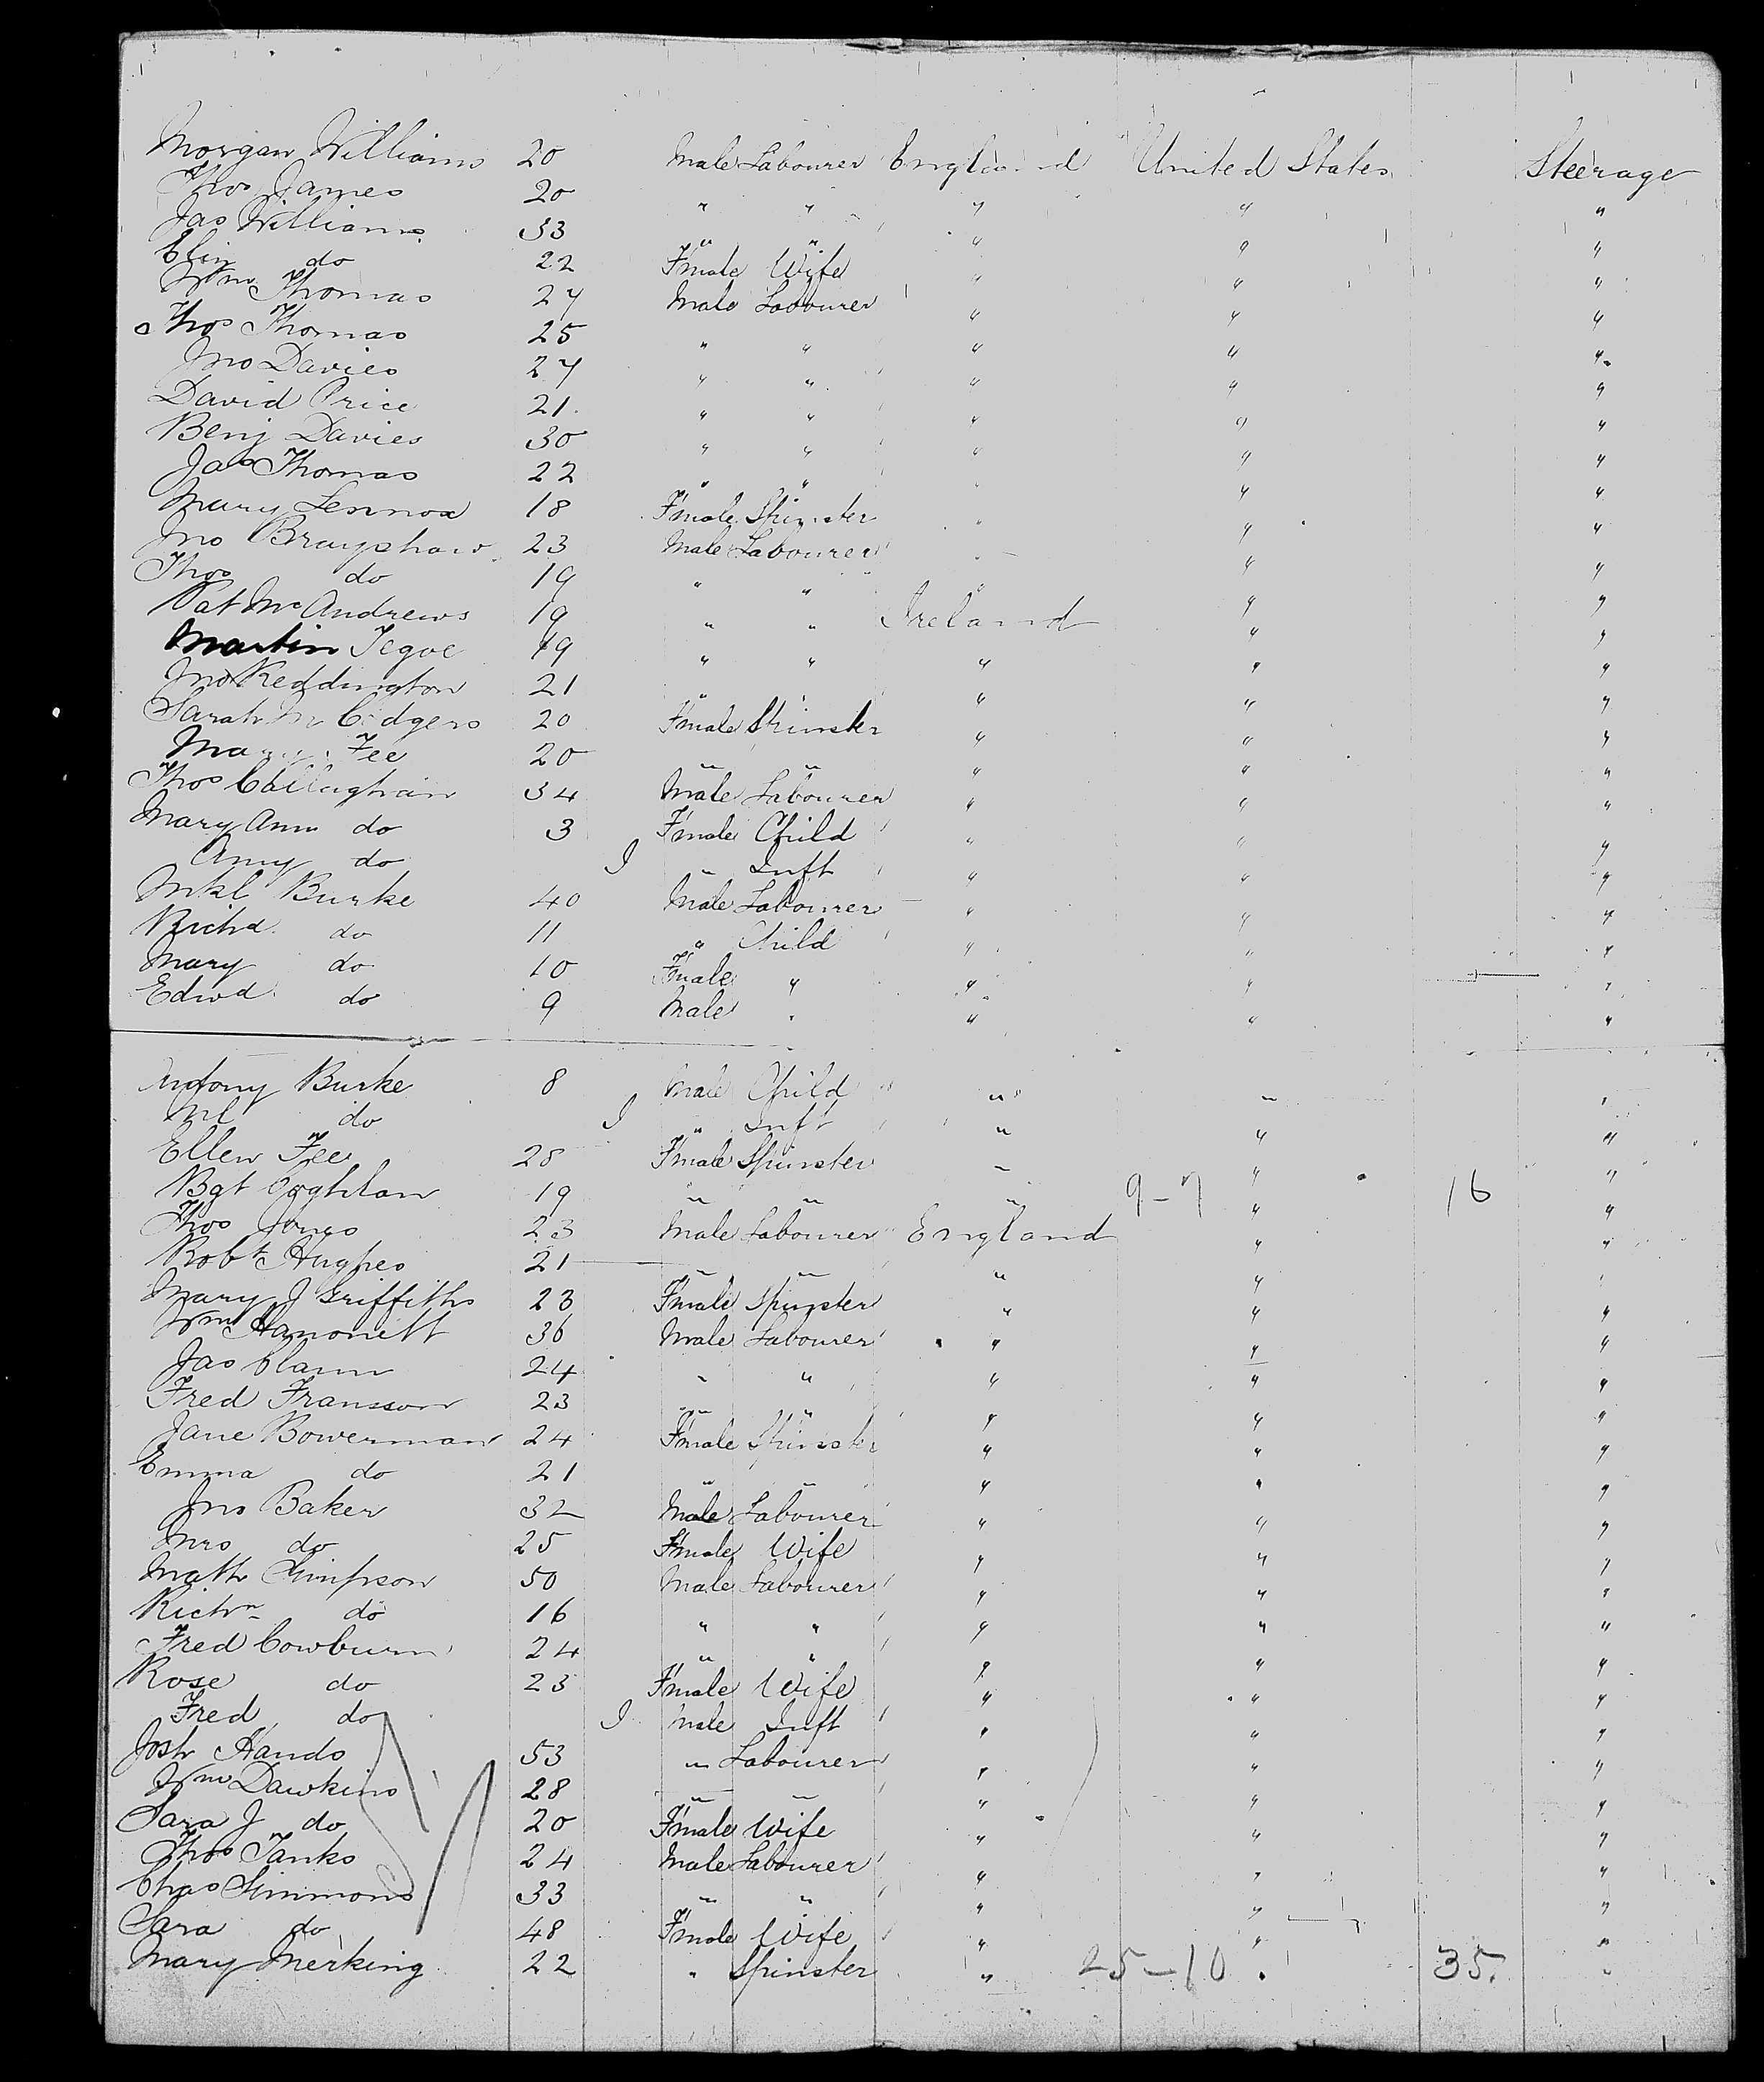 Morgan Williams 20 Male Labourer England United States Steerage
Thos James 20 " " " " "
Jas Williams 33 " " " " "
Elin do 22 Fmale Wife " " "
Wm Thomas 27 Male Labourer " " "
Thos Thomas 25 " " " " "
Jno Davies 27 " " " " "
David Price 21 " " " " "
Benj Davies 30 " " " " "
Jas Thomas 22 " " " " "
Mary Lennox 18 Fmale Spinster " " "
Jno Brayshaw 23 Male Labourer " " "
Thos do 19 " " " " "
Pat McAndrews 19 " " Ireland " "
Martin Tegue 19 " " " " "
Jno Reddington 21 " " " " "
Sarah 20 Fmale Spinster " " "
Mary Fee 20 " " " " "
Thos Callaghan 34 Male Labourer " " "
Mary Ann do 3 Fmale Child " " "
Amy do I " Inft " " "
Mkl Burke 40 Male Labourer " " "
Richd do 11 " Child " " "
Mary do 10 Fmale " " " "
Edwd do 9 Male " " " "
Antony Burke 8 Male Child " " "
Ml do I " Inft " " "
Ellen Fee 28 Fmale Spinster " " "
Bgt Coghlan 19 " " " 9-7 " 16 "
Thos Jones 23 Male Labourer England " "
Robt Hughes 21 " " " " "
Mary J Griffiths 23 Fmale Spinster " " "
Wm 36 Male Labourer " " "
Jas Clann 24 " " " " "
Fred Fransson 23 " " " " "
Jane Bowerman 24 Fmale Spinster " " "
Emma do 21 " " " " "
Jno Baker 32 Male Labourer " " "
Mrs do 25 Fmale Wife " " "
Math Simpson 50 Male Labourer " " "
Richn do 16 " " " " "
Fred Cowburn 24 " " " " "
Rose do 23 Fmale Wife " " "
Fred do I Male Inft " " "
Josh Hands 53 " Labourer " " "
Wm Dawkins 28 " " " " "
Sara J do 20 Fmale Wife " " "
Thos Tanks 24 Male Labourer " " "
Chas Simmons 33 " " " " "
Sara do 48 Fmale Wife " " "
Mary Merking 22 " Spinster " 25-10 " 35. "